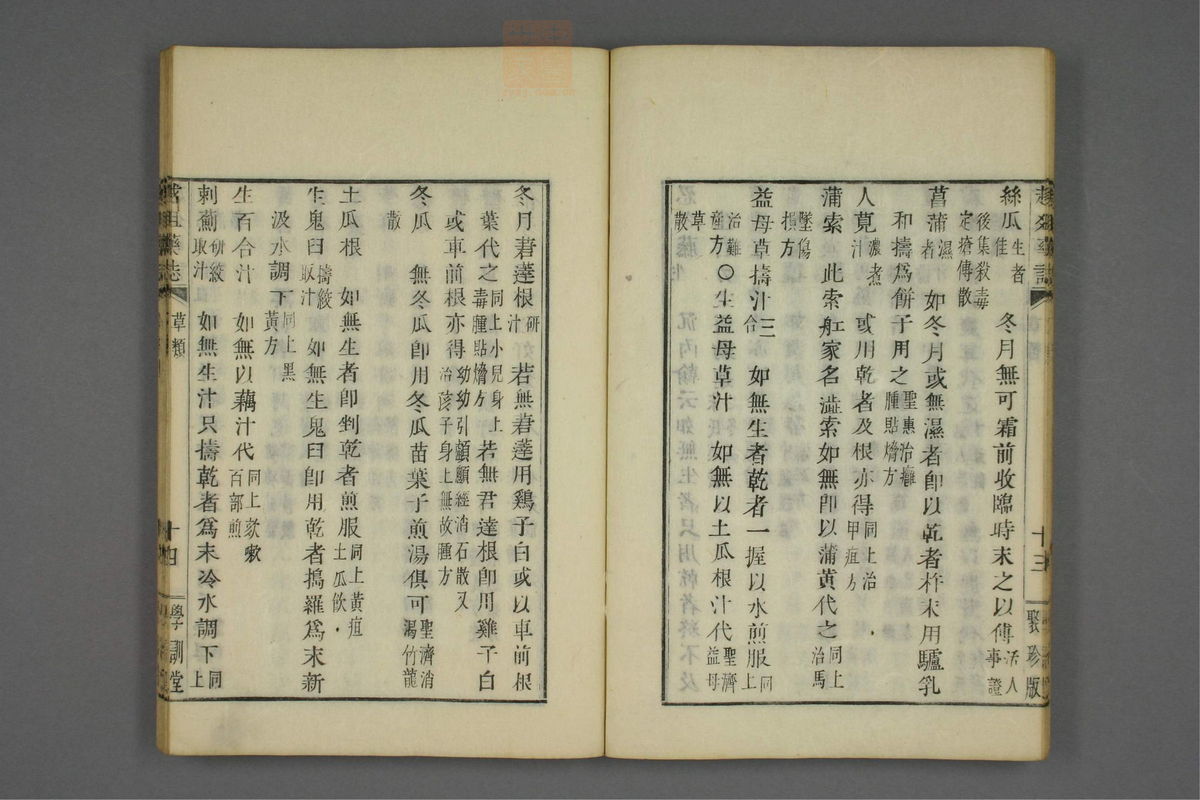 絲瓜生者佳 冬月無可霜前收臨時末之以傅活人事證
後集殺毒定搶傅散
菖蒲濕者 如冬月或無濕者卽以乾者杵末用驢乳
和擣爲餅子用之聖惠治癰腫貼熁方
人莧濃煮汁 或用乾者及根亦得同上治甲疽方
蒲索 此索舡家名澁索如無卽以蒲黃代之同上治馬
墜傷損方
益母草擣汁三合 如無生者乾者一握以水煎服同上
治難產方○生益母草汁 如無以土瓜根汁代聖濟益母
草散
十三
聚珍版
冬月著蓫根研汁 若無著蓫用鷄子白或以車前根
葉代之同上小兒身上毒腫貼熁方 若無君達根卽用雞子白
或車前根亦得幼幼引顱顖經消石散又治孩子身上無故腫方
冬瓜 無冬瓜卽用冬瓜苗葉子煎湯俱可聖濟消渴竹龍
散
土瓜根 如無生者卽判乾者煎服同上黃疸土瓜飲
生鬼臼擣絞取汁 如無生鬼臼卽用乾者搗羅爲末新
汲水調下同上黑黃方
生百合汁 如無以藕汁代同上欬嗽百部煎
刺薊研絞取汁 如無生汁只擣乾者爲末冷水調下同上
草類
十四
學訓堂